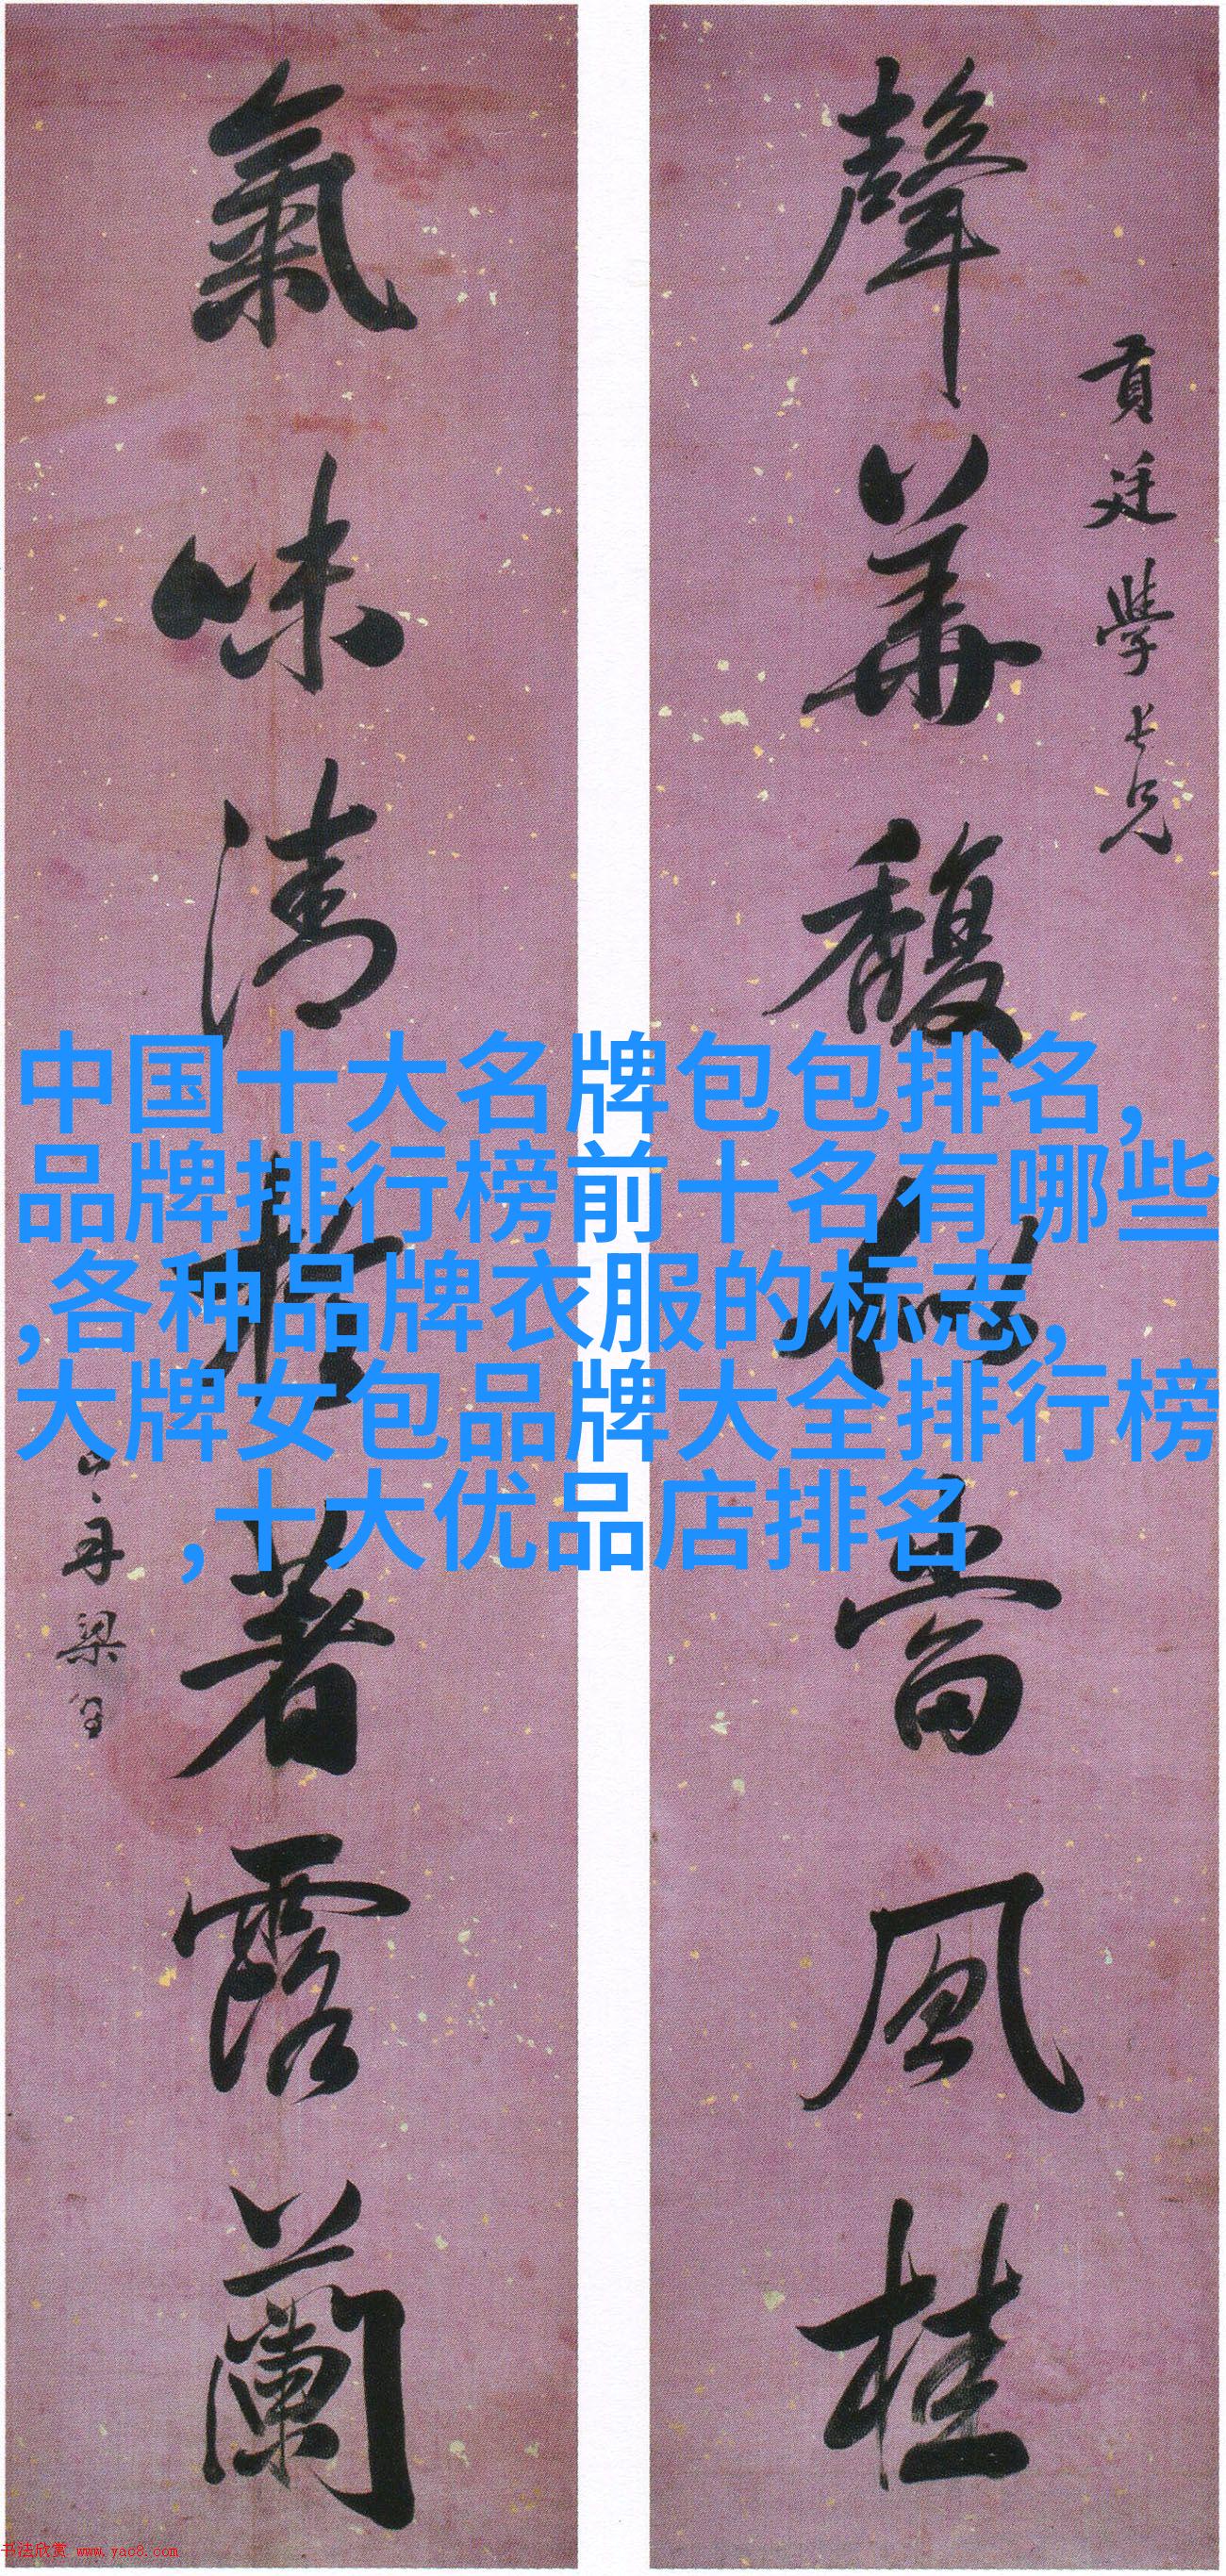 聲華馥似當風桂
貢廷學長兄
氣味清於著露蘭
山舟梁同書
中国十大名牌包包排名,
品牌排行榜前十名有哪些
,各种品牌衣服的标志,
大牌女包品牌大全排行榜
,十大优品店排名
书法欣赏 www.yac8.com